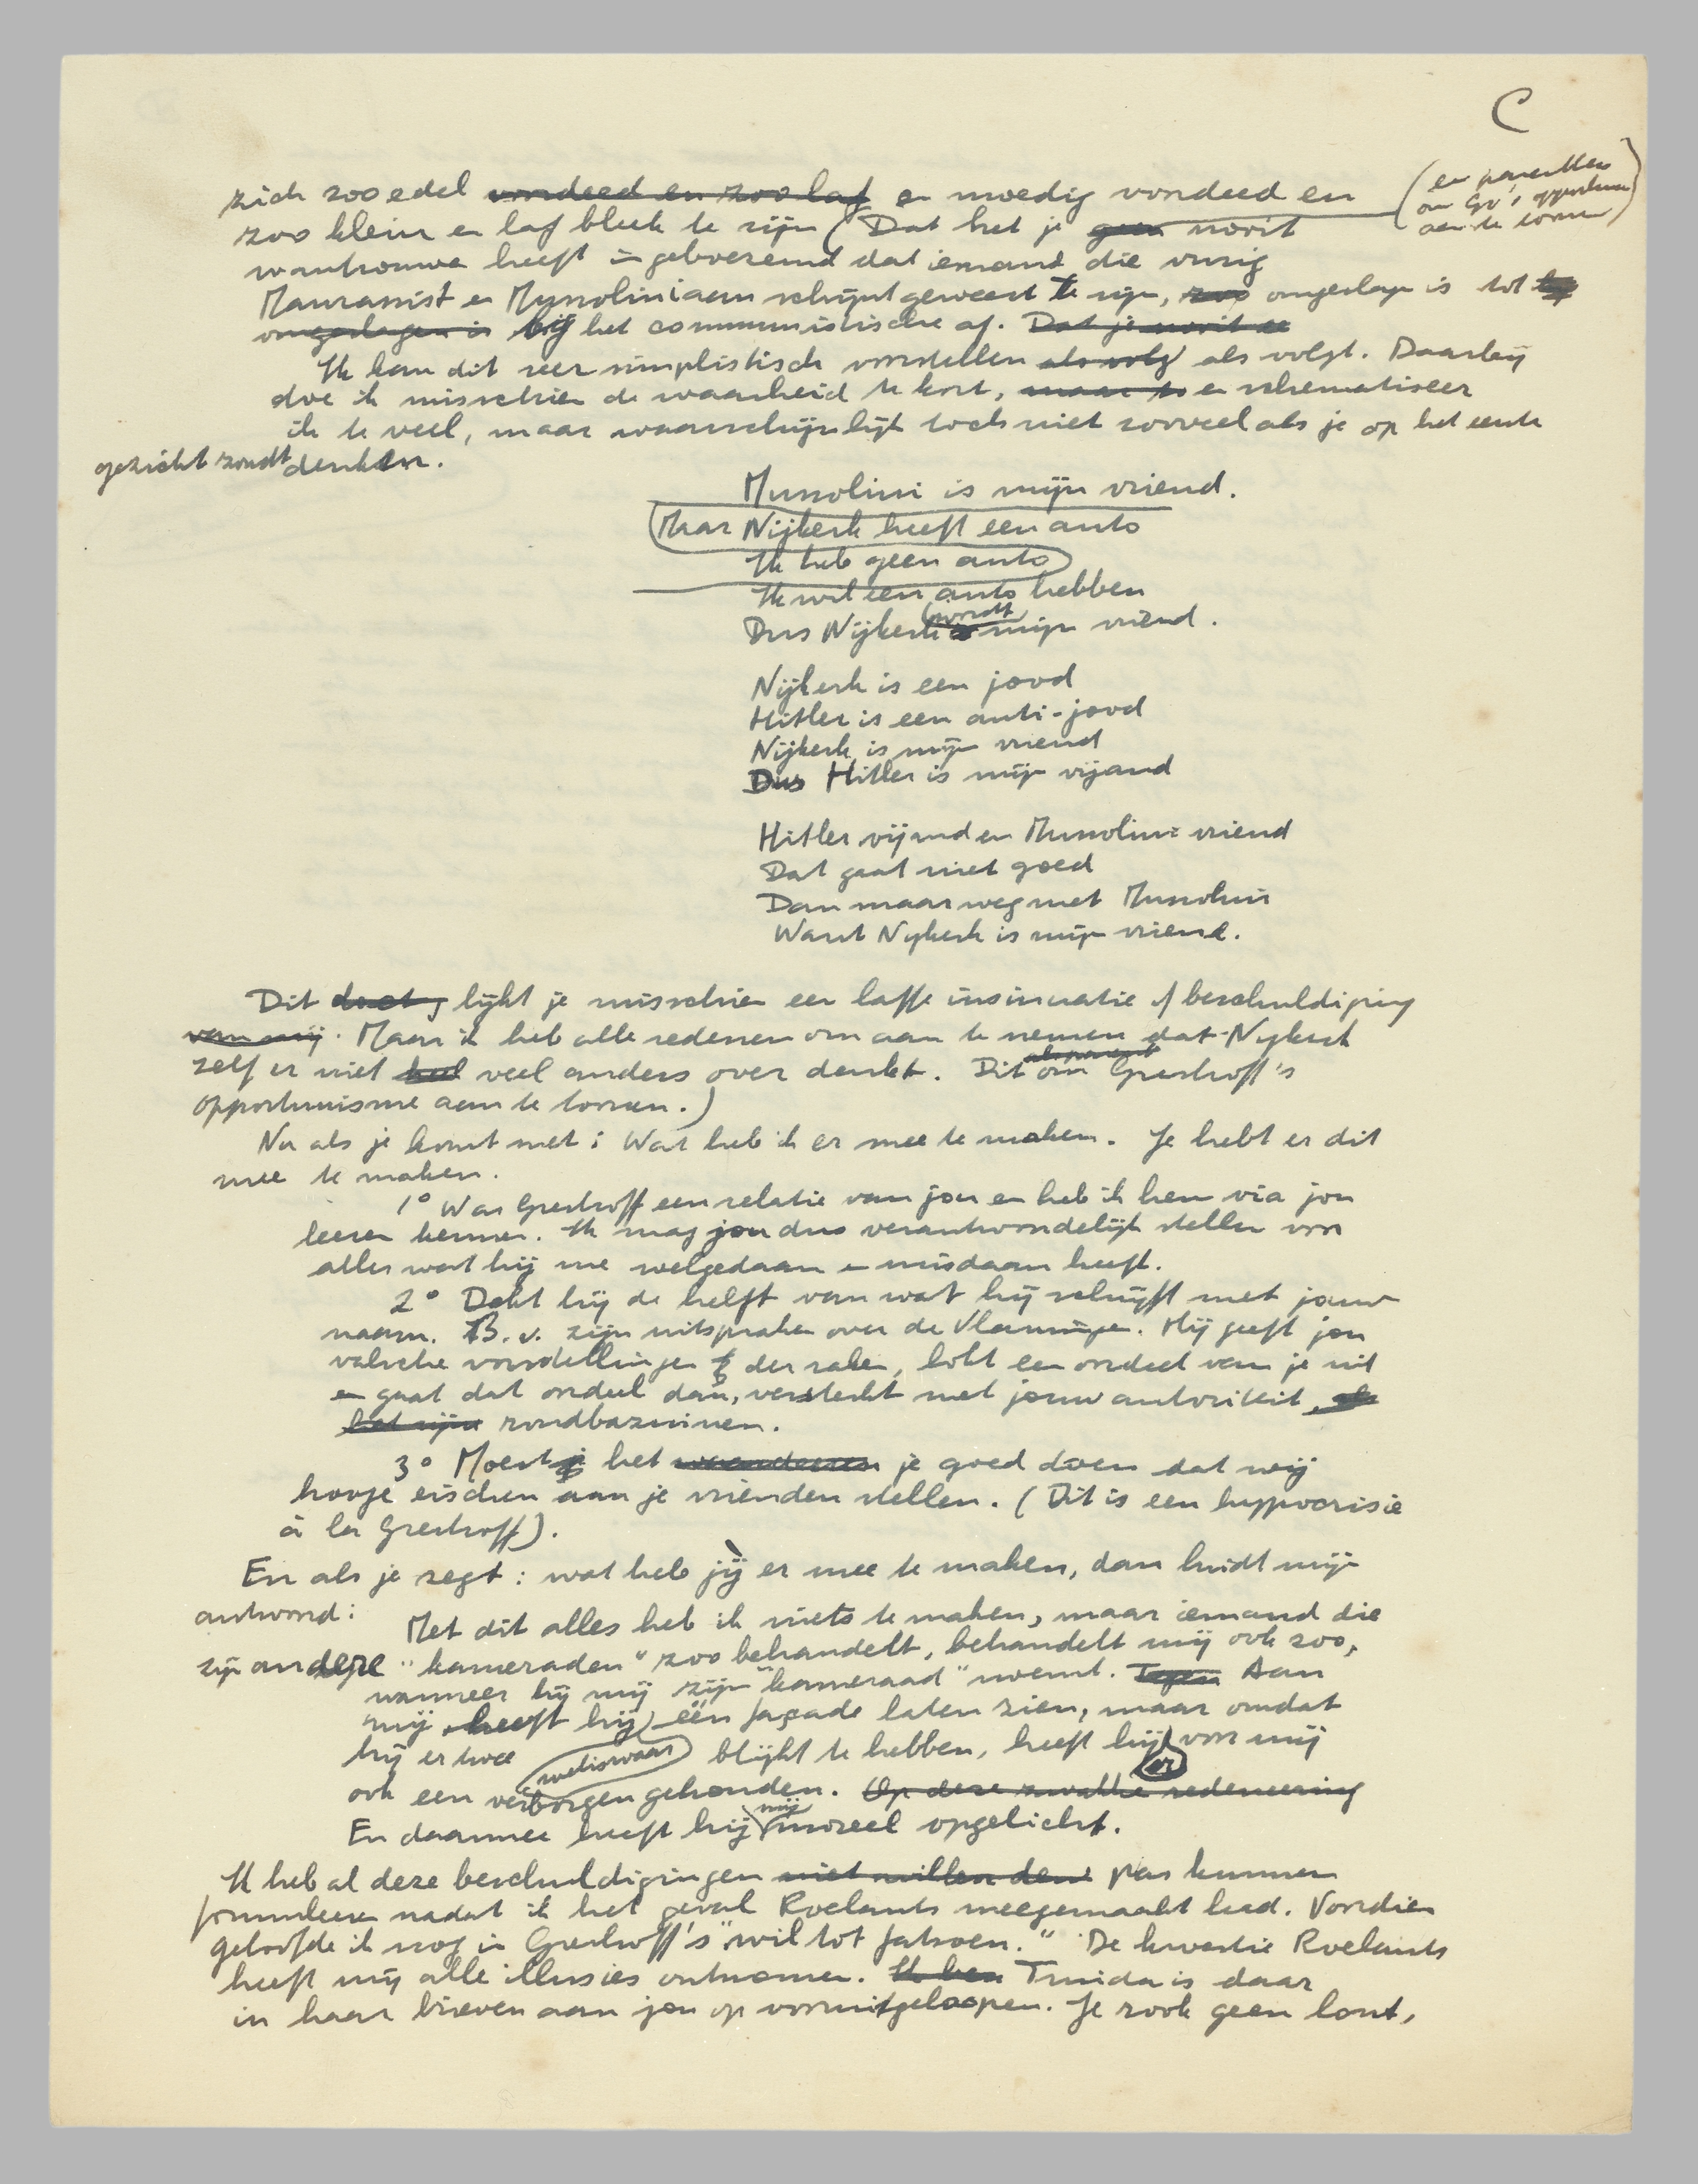 C
zich zoo edel voordeed en zoo laf en moedig voordeed en
(en om Gr's
aan te tornen)
zoo klein en laf bleek te zijn (Dat het je geen nooit
wantrouwen heeft ingeboezemd dat iemand die vurig
Maurrassist en Mussoliniaan schijnt geweest te zijn, zoo omgeslagen is tot
omgeslagen is bij het communistische af. Dat je nooit
Ik kan dit zeer simplistisch voorstellen als volg als volgt. Daarbij
doe ik misschien de waarheid te kort, maar en schematiseer
ik te veel, maar waarschijnlijk toch niet zooveel als je op het eerste
gezicht zoudt denken.
Mussolini is mijn vriend.
Maar Nijkerk heeft een auto
Ik heb geen auto
Ik wil een auto hebben
Dus Nijkerk is wordt mijn vriend.
Nijkerk is een jood
Hitler is een anti-jood
Nijkerk is mijn vriend
Dus Hitler is mijn vijand
Hitler vijand en Mussolini vriend
Dat gaat niet goed
Dan maar weg met Mussolini
Want Nijkerk is mijn vriend.
Dit lijkt je misschien een laffe insinuatie of beschuldiging
van mij. Maar ik heb alle redenen om aan te nemen dat Nijkerk
zelf er niet heel veel anders over denkt. Dit om Greshoff's
opportunisme aan te tornen.)
Nu als je komt met: Wat heb ik er mee te maken. Je hebt er dit
mee te maken.
1° Was Greshoff een relatie van jou en heb ik hem via jou
leeren kennen. Ik mag jou dus verantwoordelijk stellen voor
alles wat hij me welgedaan en misdaan heeft.
2° Dekt hij de helft van wat hij schrijft met jouw
naam. B.v. zijn uitspraken over de Vlamingen. Hij geeft jou
valsche voorstellingen der zaken, lokt een oordeel van je uit
en gaat dat oordeel dan, versterkt met jouw autoriteit, als
het zijne rondbazuinen.
3° Moest je het je goed doen dat wij
hooge eischen aan je vrienden stellen. (Dit is een hyppocrisie
à la Greshoff).
En als je zegt: wat heb jij er mee te maken, dan luidt mijn
antwoord:
Met dit alles heb ik niets te maken, maar iemand die
zijn andere "kameraden" zoo behandelt, behandelt mij ook zoo,
wanneer hij mij zijn "kameraad" noemt. Tegen Aan
mij heeft hij één façade laten zien, maar omdat
hij er twee weliswaar blijkt te hebben, heeft hij er voor mij
ook een verborgen gehouden. Op deze zwakke redeneering
En daarmee heeft hij mij moreel opgelicht.
Ik heb al deze beschuldigingen niet willen den pas kunnen
formuleeren nadat ik het geval Roelants meegemaakt had. Voordien
geloofde ik nog in Greshoff's "wil tot fatsoen." De kwestie Roelants
heeft mij alle illusies ontnomen. Ik ben Truida is daar
in haar brieven aan jou op vooruitgeloopen. Je rook geen lont,